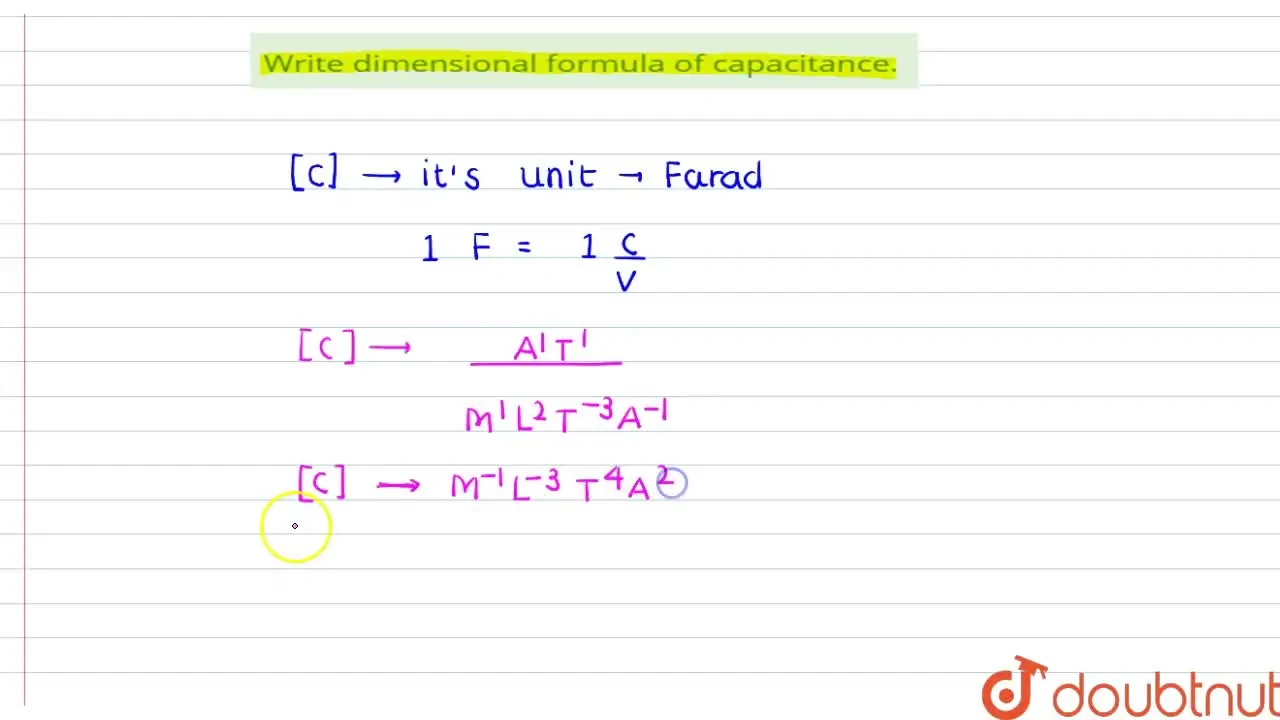 Write dimensional formula of capacitance.
[C] → it's unit → Farad
1 F = 1 C/V
[C] → A¹T¹
M¹L²T⁻³A⁻¹
[C] → M⁻¹L⁻³T⁴A²
doubtnut